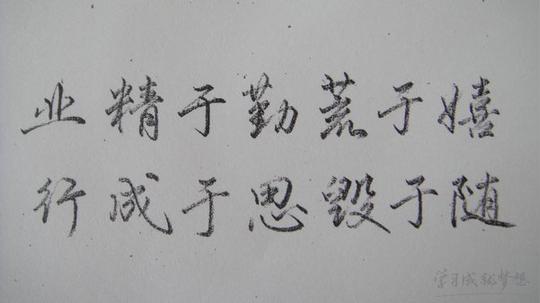 业精于勤荒于嬉
行成于思毁于随
学习成就梦想